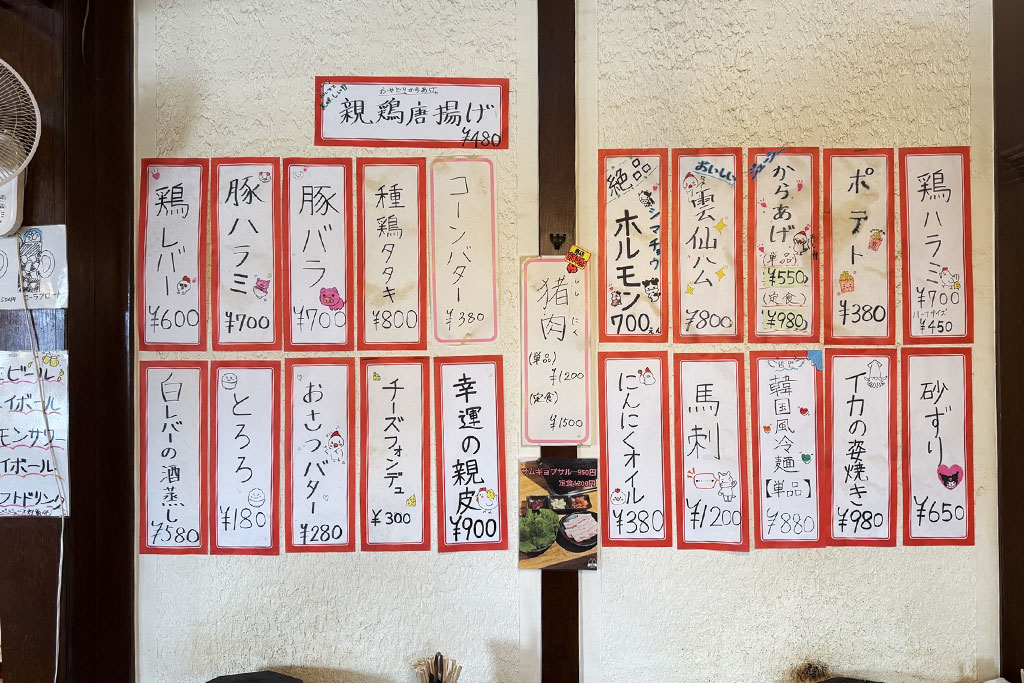 おやどりからあげ
親鶏唐揚げ
¥480
鶏レバー
¥600
豚ハラミ
¥700
豚バラ
¥700
種鶏タタキ
¥800
コーンバター
¥380
白レバーの酒蒸し
¥580
とろろ
¥180
おさつバター
¥280
チーズフォンデュ
¥300
幸運の親皮
¥900
猪肉
しし
にく
(単品)
¥1200
(定食)
¥1500
サムギョプサル 950円
定食1200円
絶品
シマチョウ
ホルモン
700えん
おいしい
雲仙ハム
¥800
ジューシー
からあげ
(単品)
¥550
(定食)
¥980
ポテト
¥380
鶏ハラミ
¥700
ハーフサイズ
¥450
にんにくオイル
¥380
馬刺
¥1200
韓国風冷麺
【単品】
¥880
イカの姿焼き
¥980
砂ずり
¥650
ビール
イボール
モンサワー
イボール
フトドリンク